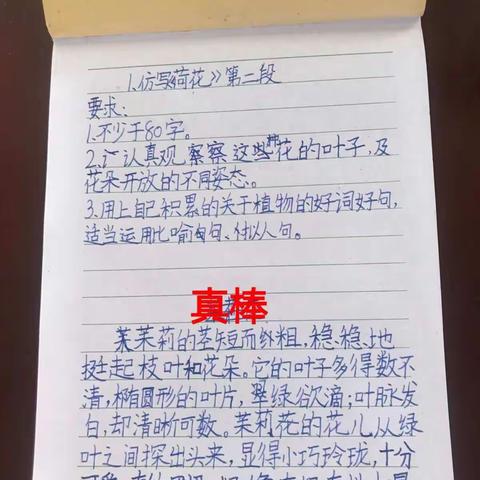 1.仿写《荷花》第二段
要求:
1.不少于80字。
2.认真观察这些种花的叶子,及
花朵开放的不同姿态。
3.用上自己积累的关于植物的好词好句,
适当运用比喻句、拟人句。
真棒
茉莉的茎短而粗,稳稳地
挺起枝叶和花朵。它的叶子多得数不
清,椭圆形的叶片,翠绿欲滴;叶脉发
白,却清晰可数。茉莉花的花儿从绿
叶之间探出头来,显得小巧玲珑,十分
可爱